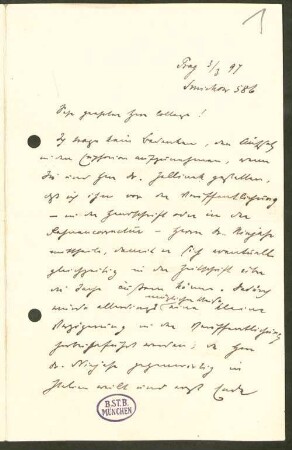 1
Prag 3/3 97
Smichow 586
Sehr geehrter Herr College!
Ich trage kein Bedenken, den Aufsatz
in den Euphorion aufzunehmen, wenn
Sie und Herr Dr. Jellinek gestatten,
daß ich ihn vor der Veröffentlichung
– in der Handschrift oder in der
– Herrn Dr.
mittheile, damit er sich eventuell
gleichzeitig in der Zeitschrift über
die Sache äußern könne. Dadurch
würde allerdings eine kleine
Verzögerung in der Veröffentlichung
herbeigeführt werden; da Herr
Dr. gegenwärtig in
Italien weilt und erst Ende
B.ST.B.
MÜNCHEN